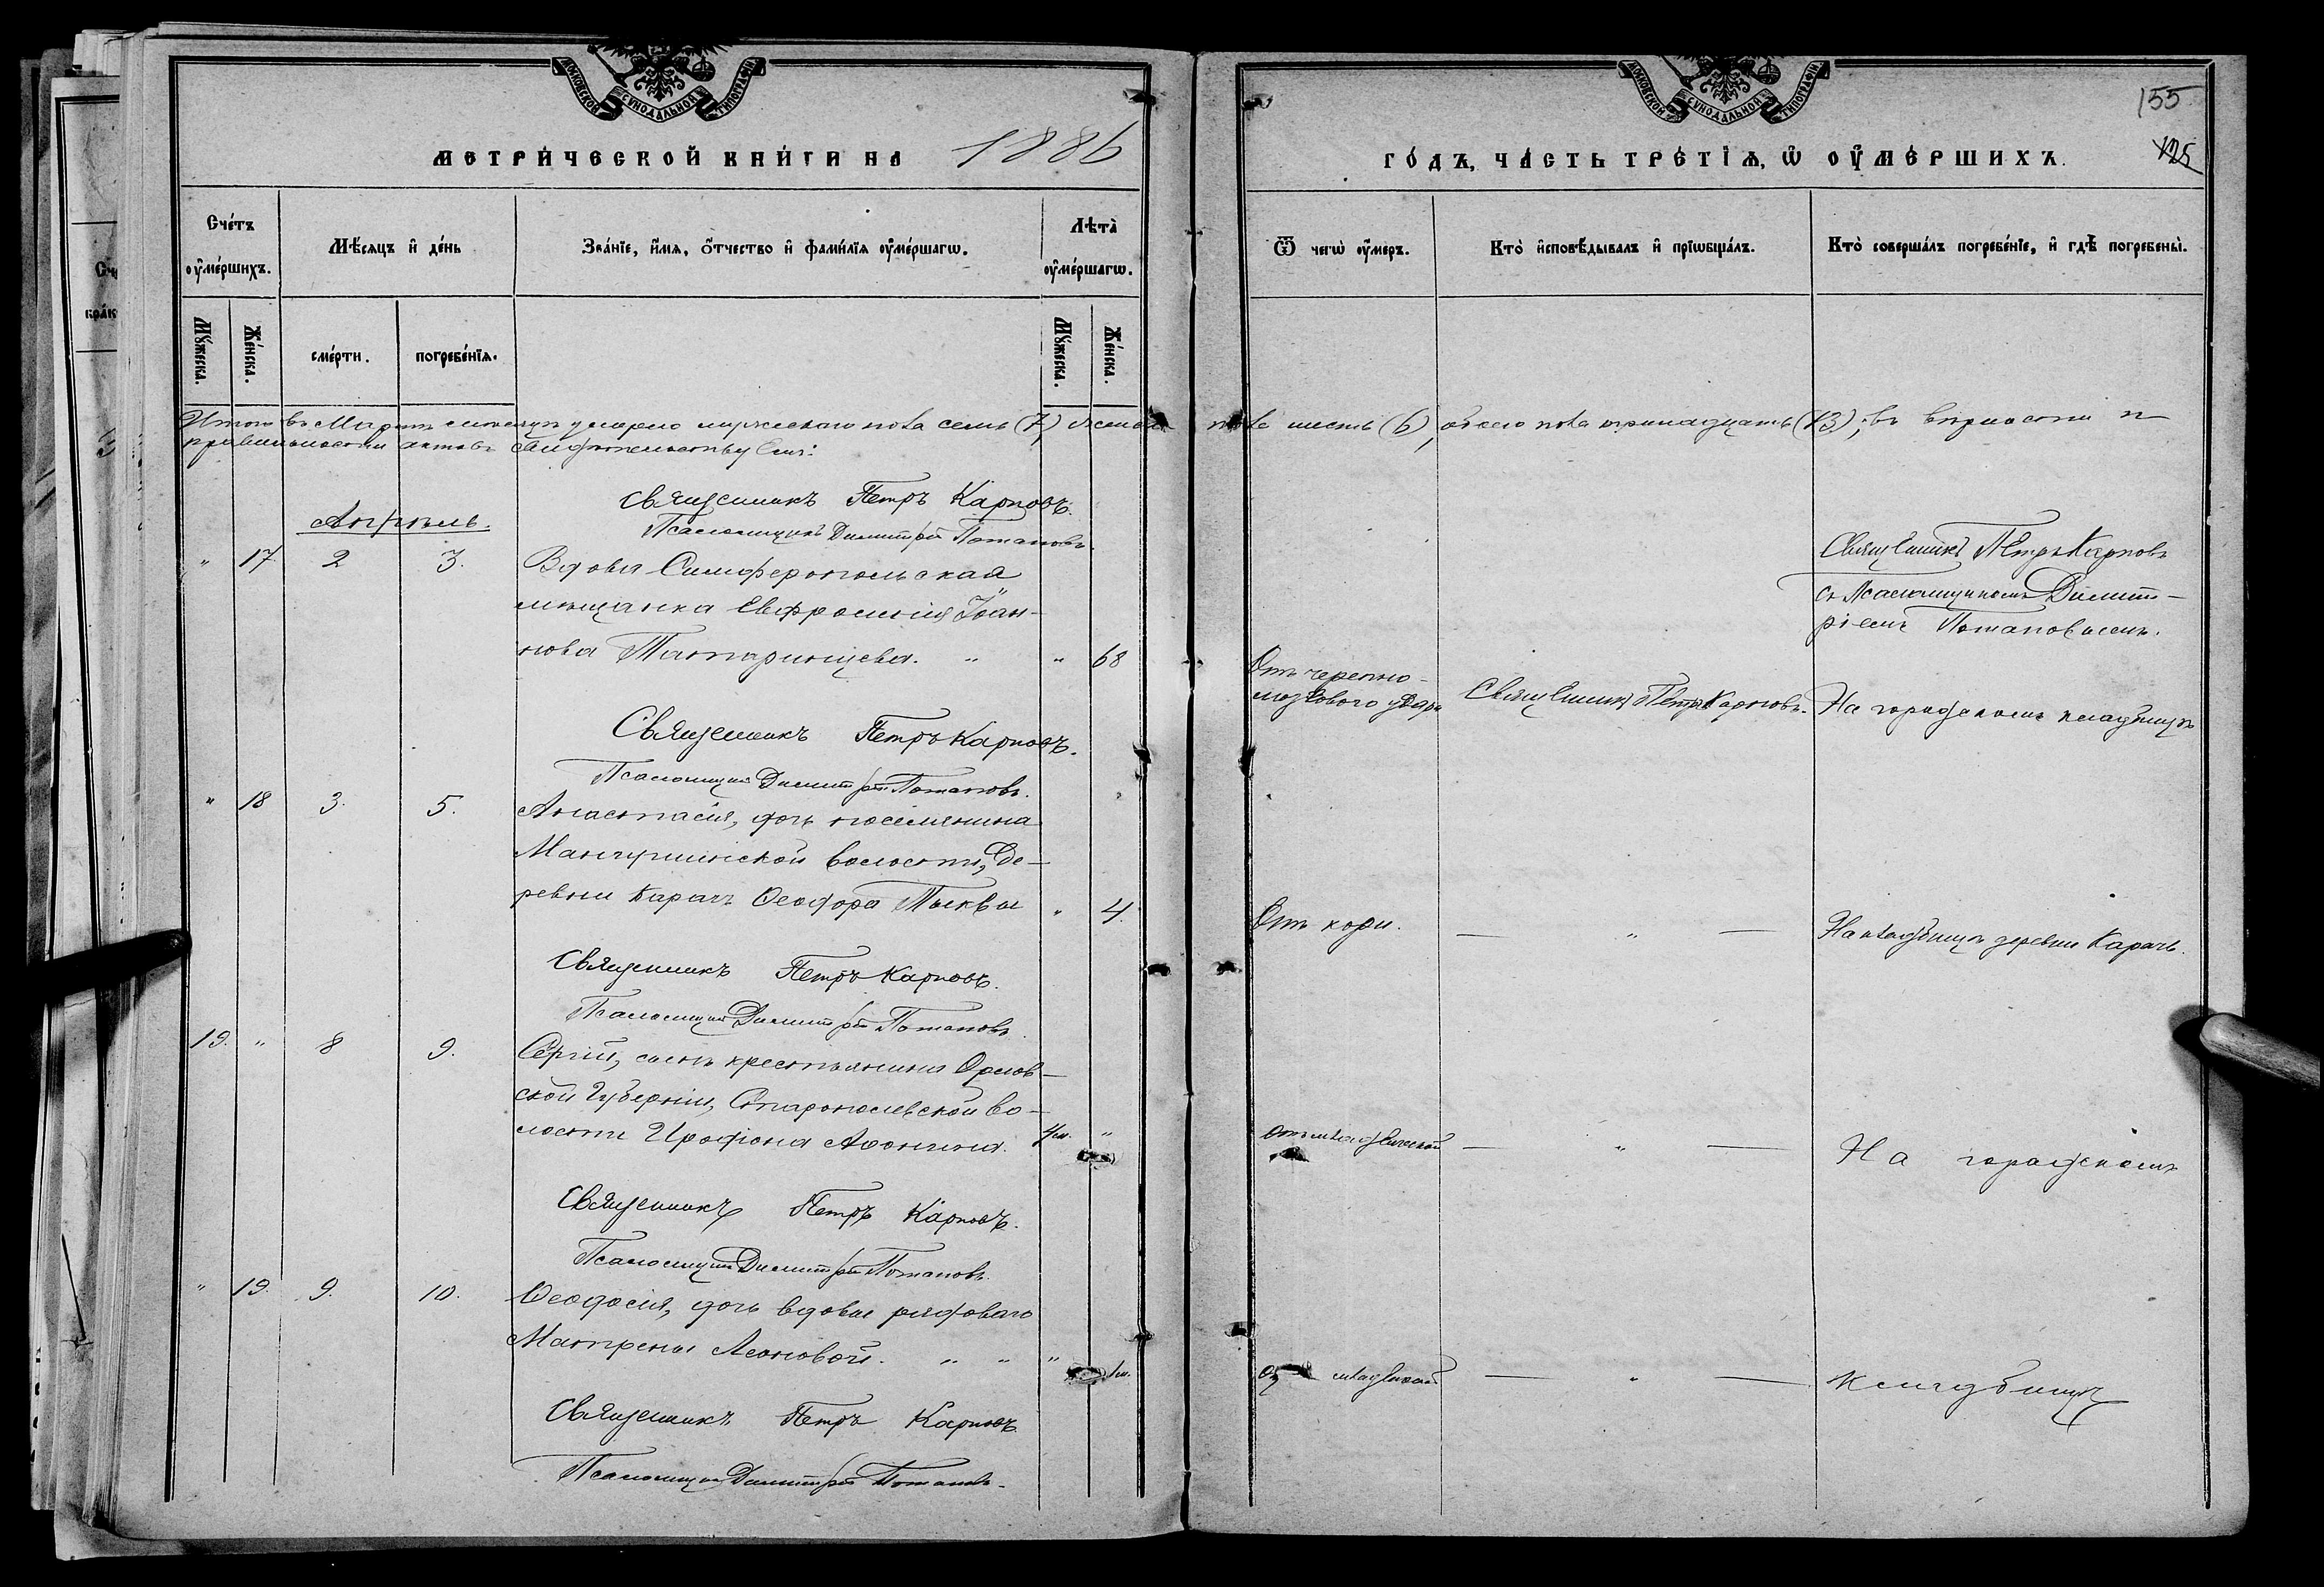 МОСКОВСКОЙ СУНОДАЛЬНОЙ ТИПОГРАФІИ
МЕТРИЧЕСКОЙ КНИГИ НА 1886
Счетъ ѹмершихъ.
Мѣсяцъ и день
Званіе, имя, отчество и фамилія ѹмершагѡ.
Лѣта ѹмершагѡ.
Мужеска.
Женска.
смерти.
погребенія.
Мужеска.
Женска.
Итого въ Мартѣ мѣсяцѣ умерло мужескаго пола семь (7), женскаго
правильности актовъ свидѣтельствуемъ:
Священникъ Петръ Карповъ.
Псаломщикъ Димитрій Потаповъ.
Апрѣль.
" 17. 2 3. Вдова Симферопольская
мѣщанка Евфросинія Іоан-
нова Татаринцева. " " 68
Священникъ Петръ Карповъ.
Псаломщикъ Димитрій Потаповъ.
" 18 3. 5. Анастасія, дочь поселянина
Мангушинской волости, де-
ревни Карачъ Ѳеодора Тыквы " 4.
Священникъ Петръ Карповъ.
Псаломщикъ Димитрій Потаповъ.
19. " 8 9. Сергій, сынъ крестьянина Орлов-
ской губерніи, волости Аѳонина. 4м. "
Священникъ Петръ Карповъ.
Псаломщикъ Димитрій Потаповъ.
" 19. 9. 10. Ѳеодосія, дочь вдовы рядоваго
Матрены Леоновой. " " " 1м.
Священникъ Петръ Карповъ
Псаломщикъ Димитрій Потаповъ.
МОСКОВСКОЙ СУНОДАЛЬНОЙ ТИПОГРАФІИ
155
125
ГОДЪ, ЧАСТЬ ТРЕТІЯ, Ѡ ОУМЕРШИХЪ.
Ѿ чегѡ ѹмеръ.
Кто исповѣдывалъ и пріѡбщалъ.
Кто совершалъ погребеніе, и гдѣ погребены.
пола шесть (6), обоего пола тринадцать (13); въ вѣрности и
Священникъ Петръ Карповъ
съ Псаломщикомъ Димит-
ріемъ Потаповымъ.
Отъ черепно-
мозгового удара Священникъ Петръ Карповъ. На городскомъ кладбищѣ
Отъ кори. — " — На кладбищѣ деревни Карачъ.
Отъ младенческой — " — На городскомъ
младенческой — " — кладбищѣ